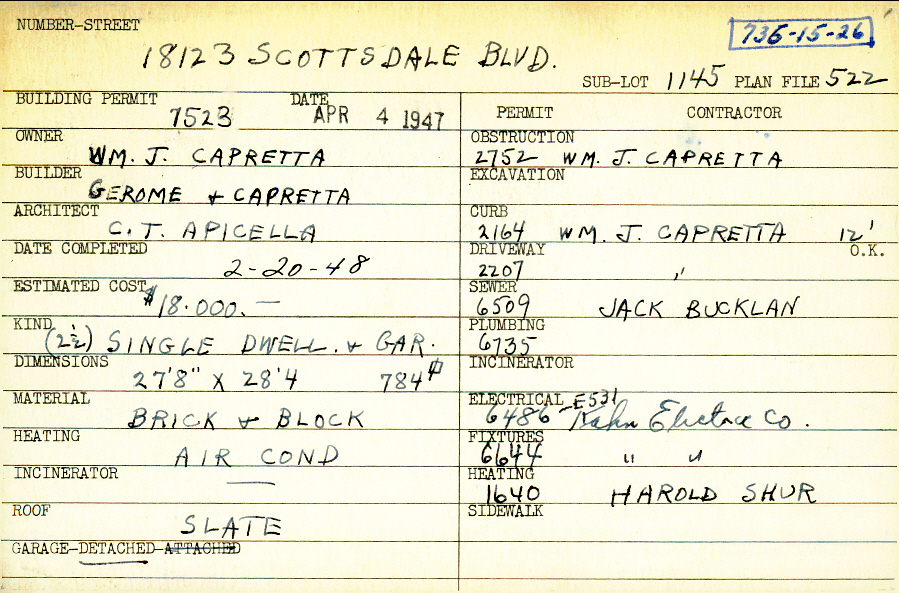 NUMBER-STREET
736-15-26
18123 SCOTTSDALE BLVD.
SUB-LOT 1145 PLAN FILE 522
BUILDING PERMIT 7523 DATE APR 4 1947
OWNER WM. J. CAPRETTA
BUILDER GEROME & CAPRETTA
ARCHITECT C. T. APICELLA
DATE COMPLETED 2-20-48
ESTIMATED COST $18.000.—
KIND (2½) SINGLE DWELL. & GAR.
DIMENSIONS 27'8" X 28'4 784#
MATERIAL BRICK & BLOCK
HEATING AIR COND
INCINERATOR —
ROOF SLATE
GARAGE-DETACHED-ATTACHED
PERMIT CONTRACTOR
OBSTRUCTION 2752 WM. J. CAPRETTA
EXCAVATION
CURB 2164 WM. J. CAPRETTA 12'
O.K.
DRIVEWAY 2207 "
SEWER 6509 JACK BUCKLAN
PLUMBING 6735
INCINERATOR
ELECTRICAL 6486-E531 Kahn Electric Co.
FIXTURES 6644 " "
HEATING 1640 HAROLD SHUR
SIDEWALK